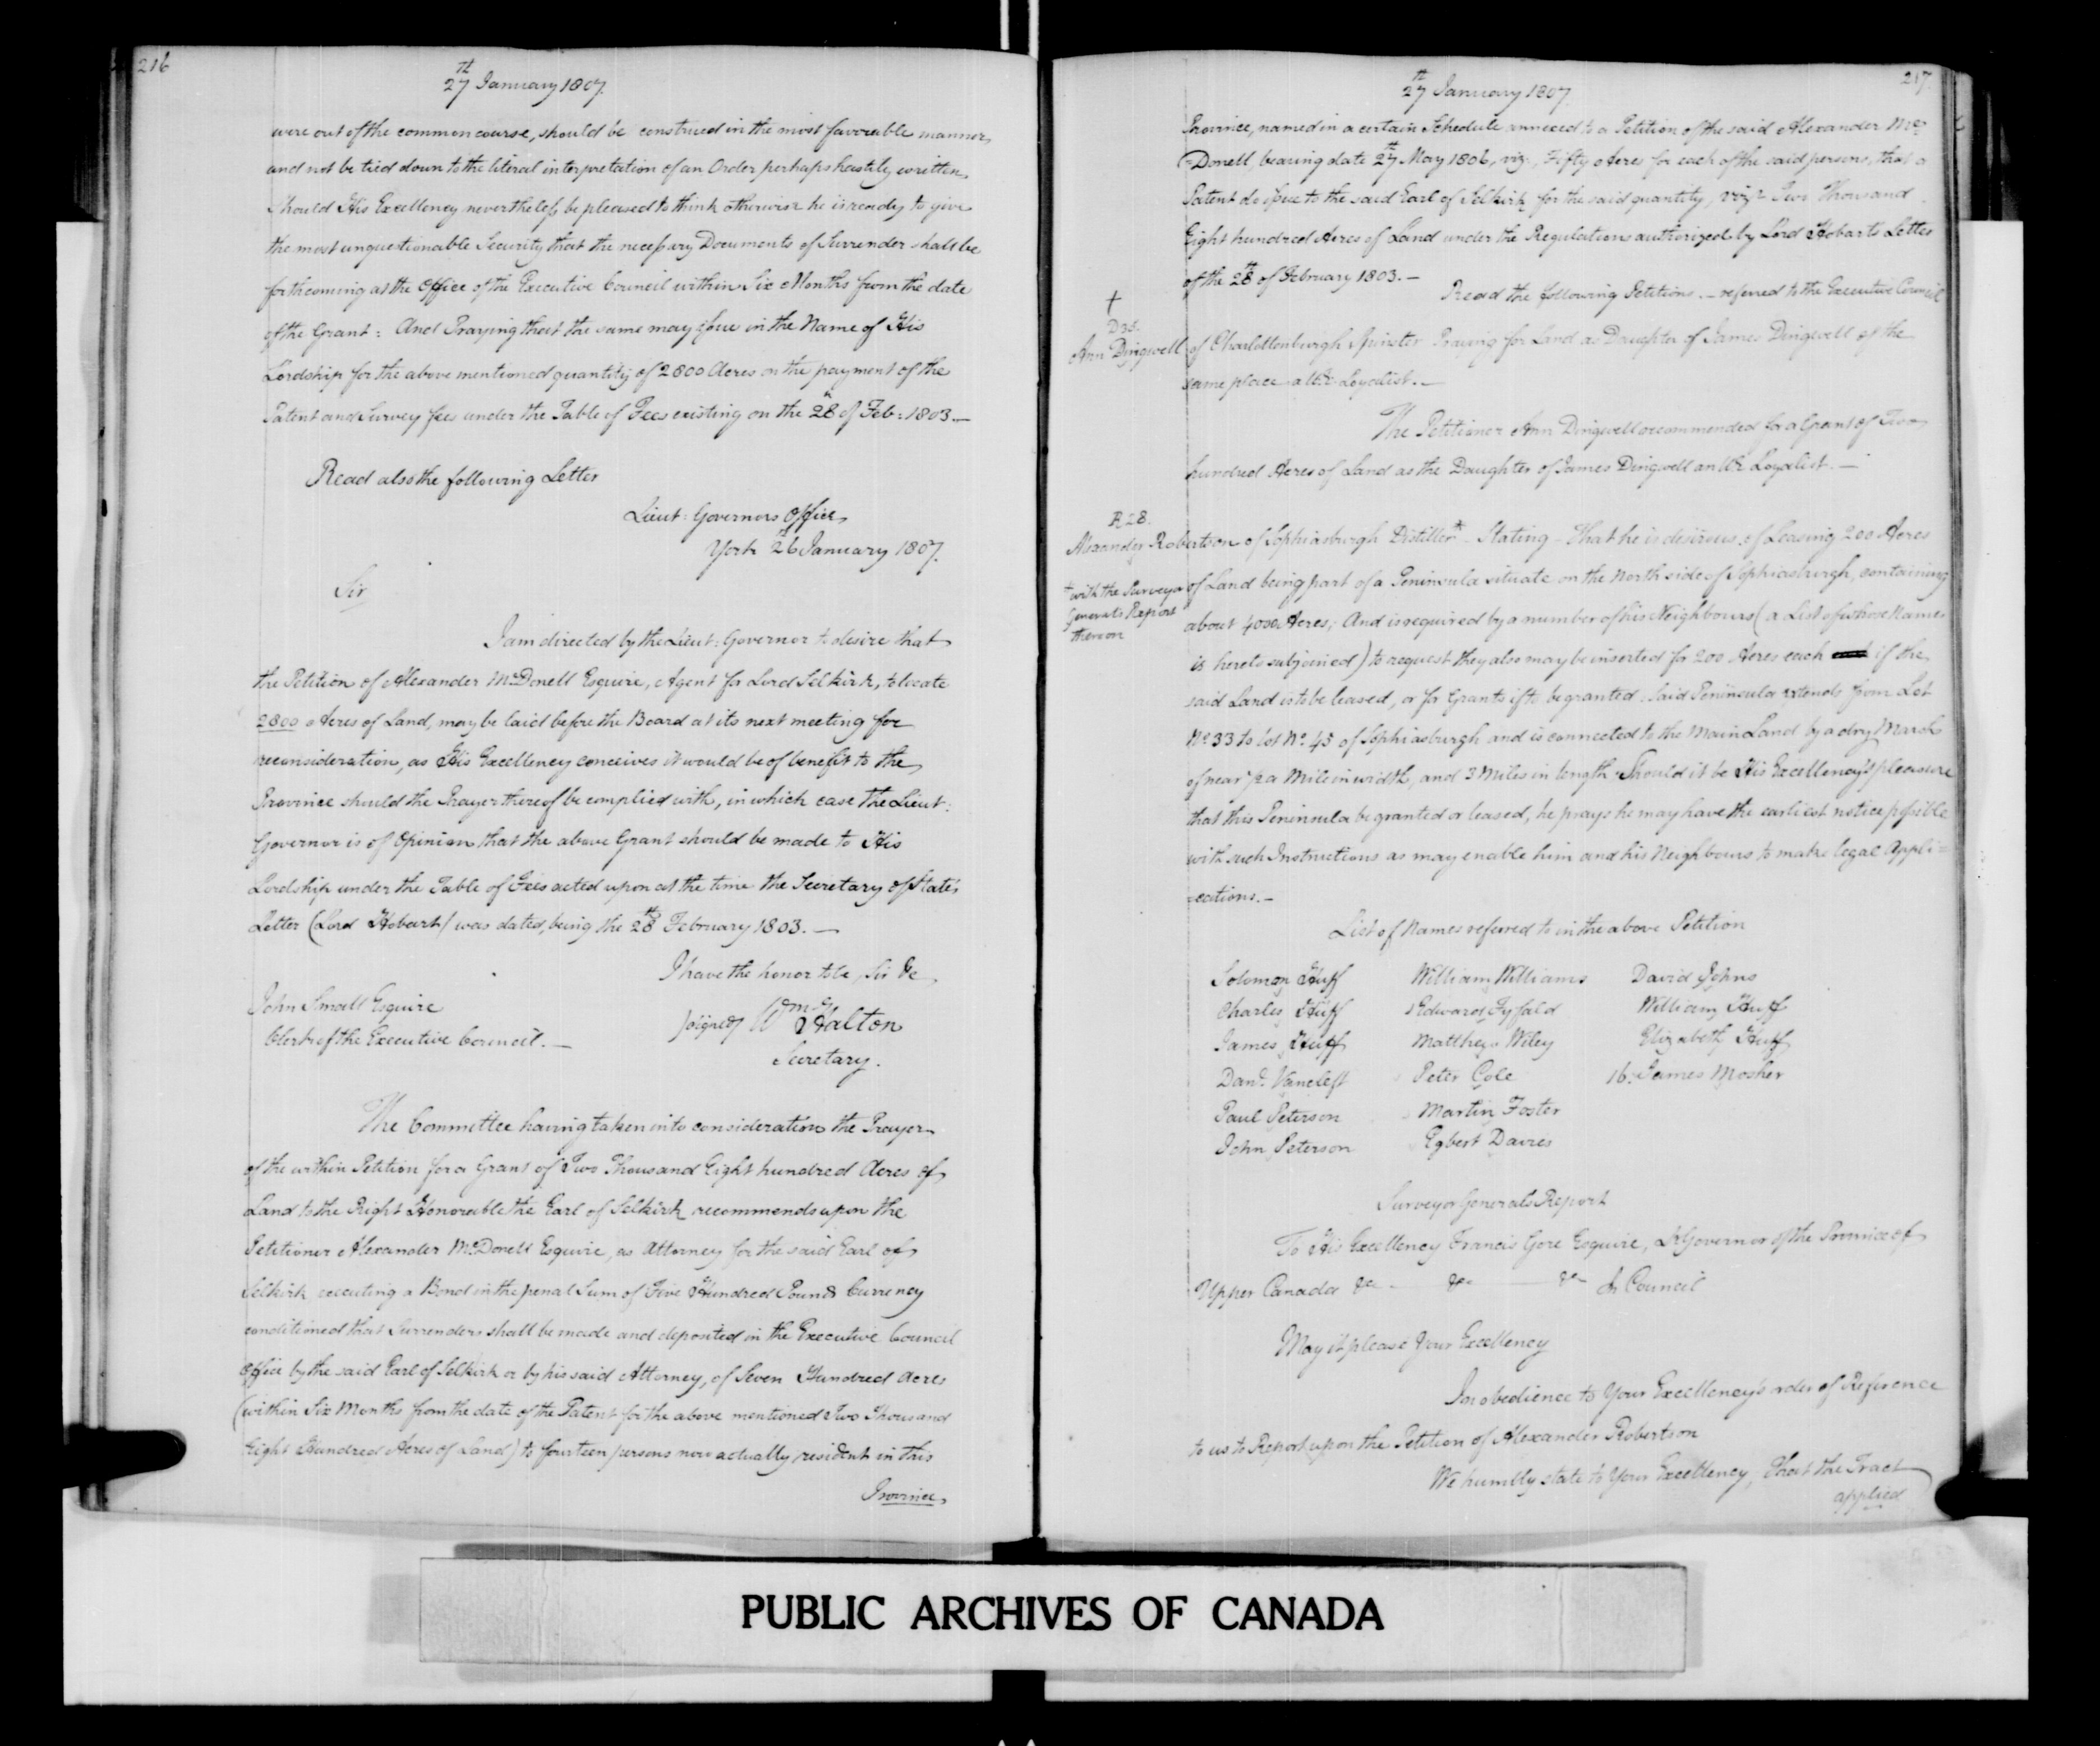 216
27th January 1807.
were out of the common course, should be construed in the most favorable manner,
and not be tied down to the literal interpretation of an Order perhaps hastily written,
should His Excellency nevertheless be pleased to think otherwise he is ready to give
the most unquestionable Security that the necessary Documents of Surrender shall be
forthcoming at the Office of the Executive Council within Six Months from the date
of the Grant: And Praying that the same may issue in the Name of His
Lordship for the above mentioned quantity of 2800 Acres on the payment of the
Patent and Survey fees under the Table of Fees existing on the 28th of Feb: 1803.—
Read also the following Letter
Lieut: Governors Office,
York 26th January 1807.
Sir
I am directed by the Lieut: Governor to desire that
the Petition of Alexander McDonell Esquire, Agent for Lord Selkirk, to locate
2800 Acres of Land, may be laid before the Board at its next meeting for
reconsideration, as His Excellency conceives it would be of benefit to the
Province should the Prayer thereof be complied with, in which case The Lieut:
Governor is of Opinion that the above Grant should be made to His
Lordship under the Table of Fees acted upon at the time the Secretary of State's
Letter (Lord Hobart) was dated, being the 28th February 1803.—
I have the honor to be, Sir &c
John Small Esquire
signed Wm Halton
Clerk of the Executive Council.—
Secretary.
The Committee having taken into consideration the Prayer
of the within Petition for a Grant of Two Thousand Eight hundred Acres of
Land to the Right Honorable the Earl of Selkirk recommends upon the
Petitioner Alexander McDonell Esquire, as Attorney for the said Earl of
Selkirk executing a Bond in the penal Sum of Five Hundred Pounds Currency
conditioned that Surrenders shall be made and deposited in the Executive Council
Office by the said Earl of Selkirk or by his said Attorney, of Seven Hundred Acres
(within Six Months from the date of the Patent for the above mentioned Two Thousand
Eight Hundred Acres of Land) to fourteen persons now actually resident in this
Province,
217.
27th January 1807.
Province, named in a certain Schedule annexed to a Petition of the said Alexander Mc
=Donell, bearing date 27th May 1806, viz, Fifty Acres for each of the said persons, that a
Patent do issue to the said Earl of Selkirk for the said quantity, viz Two Thousand
Eight hundred Acres of Land under the Regulations authorized by Lord Hobarts Letter
of the 28th of February 1803.—
Read the following Petitions.— referred to the Executive Council
D35.
Ann Dingwell of Charlottenburgh Spinster Praying for Land as Daughter of James Dingwell of the
same place a UE Loyalist.—
The Petitioner Ann Dingwell recommended for a Grant of Two
hundred Acres of Land as the Daughter of James Dingwell an UE Loyalist.—
R28.
Alexander Robertson of Sophiasburgh Distiller + Stating - That he is desirous of Leasing 200 Acres
+ with the Surveyor
Generals Report
thereon
of Land being part of a Peninsula situate on the North side of Sophiasburgh, containing
about 4000 Acres; And is required by a number of his Neighbours (a List of whose Names
is hereto subjoined) to request they also may be inserted for 200 Acres each if the
said Land is to be leased, or for Grants if to be granted. Said Peninsula extends from Lot
No. 33 to Lot No. 45 of Sophiasburgh and is connected to the Main Land by a dry Marsh
of near 1/2 a Mile in width, and 3 Miles in length. Should it be His Excellency's pleasure
that this Peninsula be granted or leased, he prays he may have the earliest notice possible
with such Instructions as may enable him and his Neighbours to make legal appli=
=cations.—
List of Names referred to in the above Petition
Solomon Huff William Williams David Johns
Charles Huff Edward William Huff
James Huff Matthew Wiley Elizabeth Huff
Danl. Vancleft Peter Cole 16. James Mosher
Paul Peterson Martin Foster
John Peterson Egbert Davies
Surveyor Generals Report
To His Excellency Francis Gore Esquire, Lt Governor of the Province of
Upper Canada &c - &c — &c In Council
May it please Your Excellency
In obedience to Your Excellency's order of Reference
to us to Report upon the Petition of Alexander Robertson
We humbly state to Your Excellency, That the Tract
applied
PUBLIC ARCHIVES OF CANADA